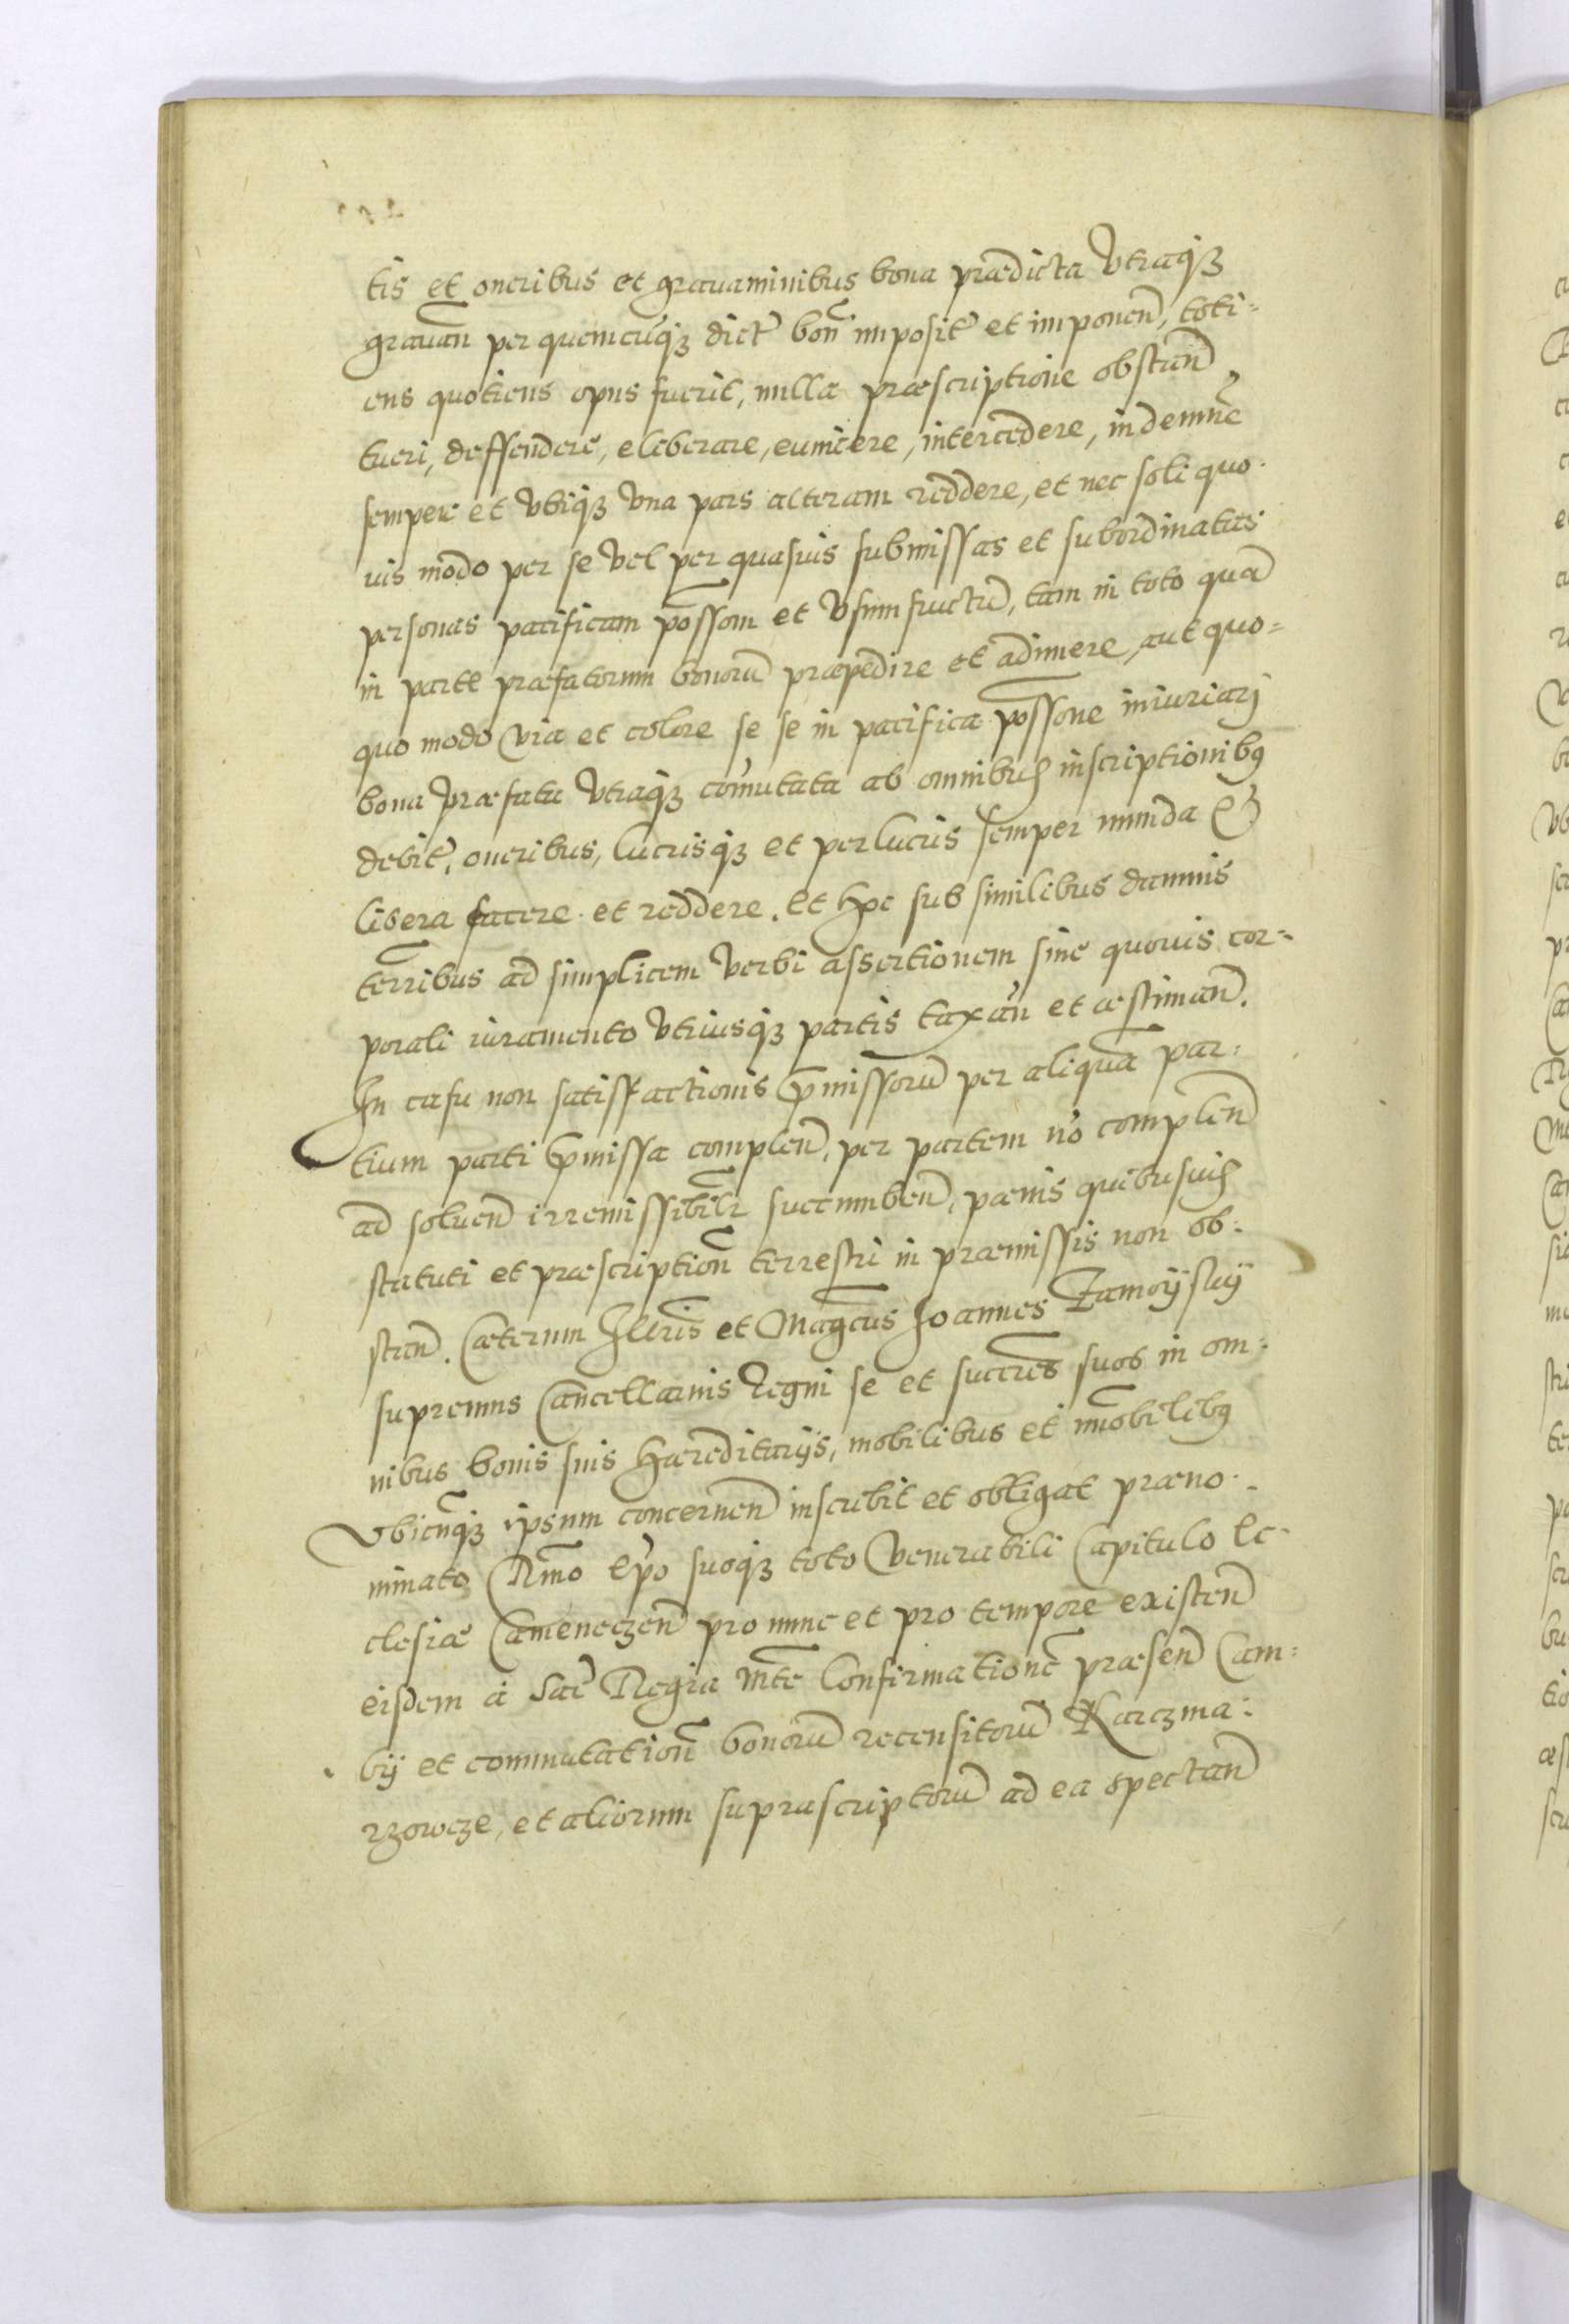 tis et oneribus et grauaminibus bona prædicta Vtraqꝫ
grauan̄ per quemcūqꝫ dict̄ bon̄ imposit̄ et imponen̄, toti=
ens quotiens opus fuerit, nulla præscriptione obstan̄
tueri, deffendere, eliberare, euincere, intercedere, indemnē
semper et vbiqꝫ vna pars alteram reddere, et nec soli quo-
uis modo per se vel per quasuis submissas et subordinatas
personas pacificam possom et vsumfructū, tam in toto quā
in parte præfatorum bonorū præpedire et adimere, aut quo=
quo modo via et colore se se in pacifica possone iniuriarj
bona præfata vtraqꝫ com̄utata ab omnibus inscriptionibꝰ
debit̄, oneribus, lucrisqꝫ et perlucris semper munda et
libera facere et reddere. Et hoc sub similibus damnis
terribus ad simplicem verbi assertionem sine quouis cor=
porali iuramento vtriusqꝫ partis taxan̄ et æstiman̄.
In casu non satisfactionis p̄missorū per aliquā par:
tium parti p̄missa complen̄, per partem nō complen̄
ad soluen̄ irremissibilr succumben̄, pænis quibusuis
statuti et præscription̄ terrestri in præmissis non ob:
stan̄. Cæterum Illris et Magcus Joannes Zamoÿskÿ
supremus Cancellarius Regni se et succres suos in om:
nibus bonis suis hæreditarijs, mobilibus et im̄obilibꝰ
Vbicūqꝫ ipsum concernen̄ inscribit et obligat præno-
minato Rmo Epo suoqꝫ toto Venerabili Capitulo Ec-
clesiæ Cameneczen̄ pro nunc et pro tempore existen̄
eisdem a Sac̄ Regia Mte Confirmationē præsen̄ Cam:
bij et commutation̄ bonorū recensitorū Karczma:
rzowcze, et aliorum suprascriptorū ad ea spectan̄